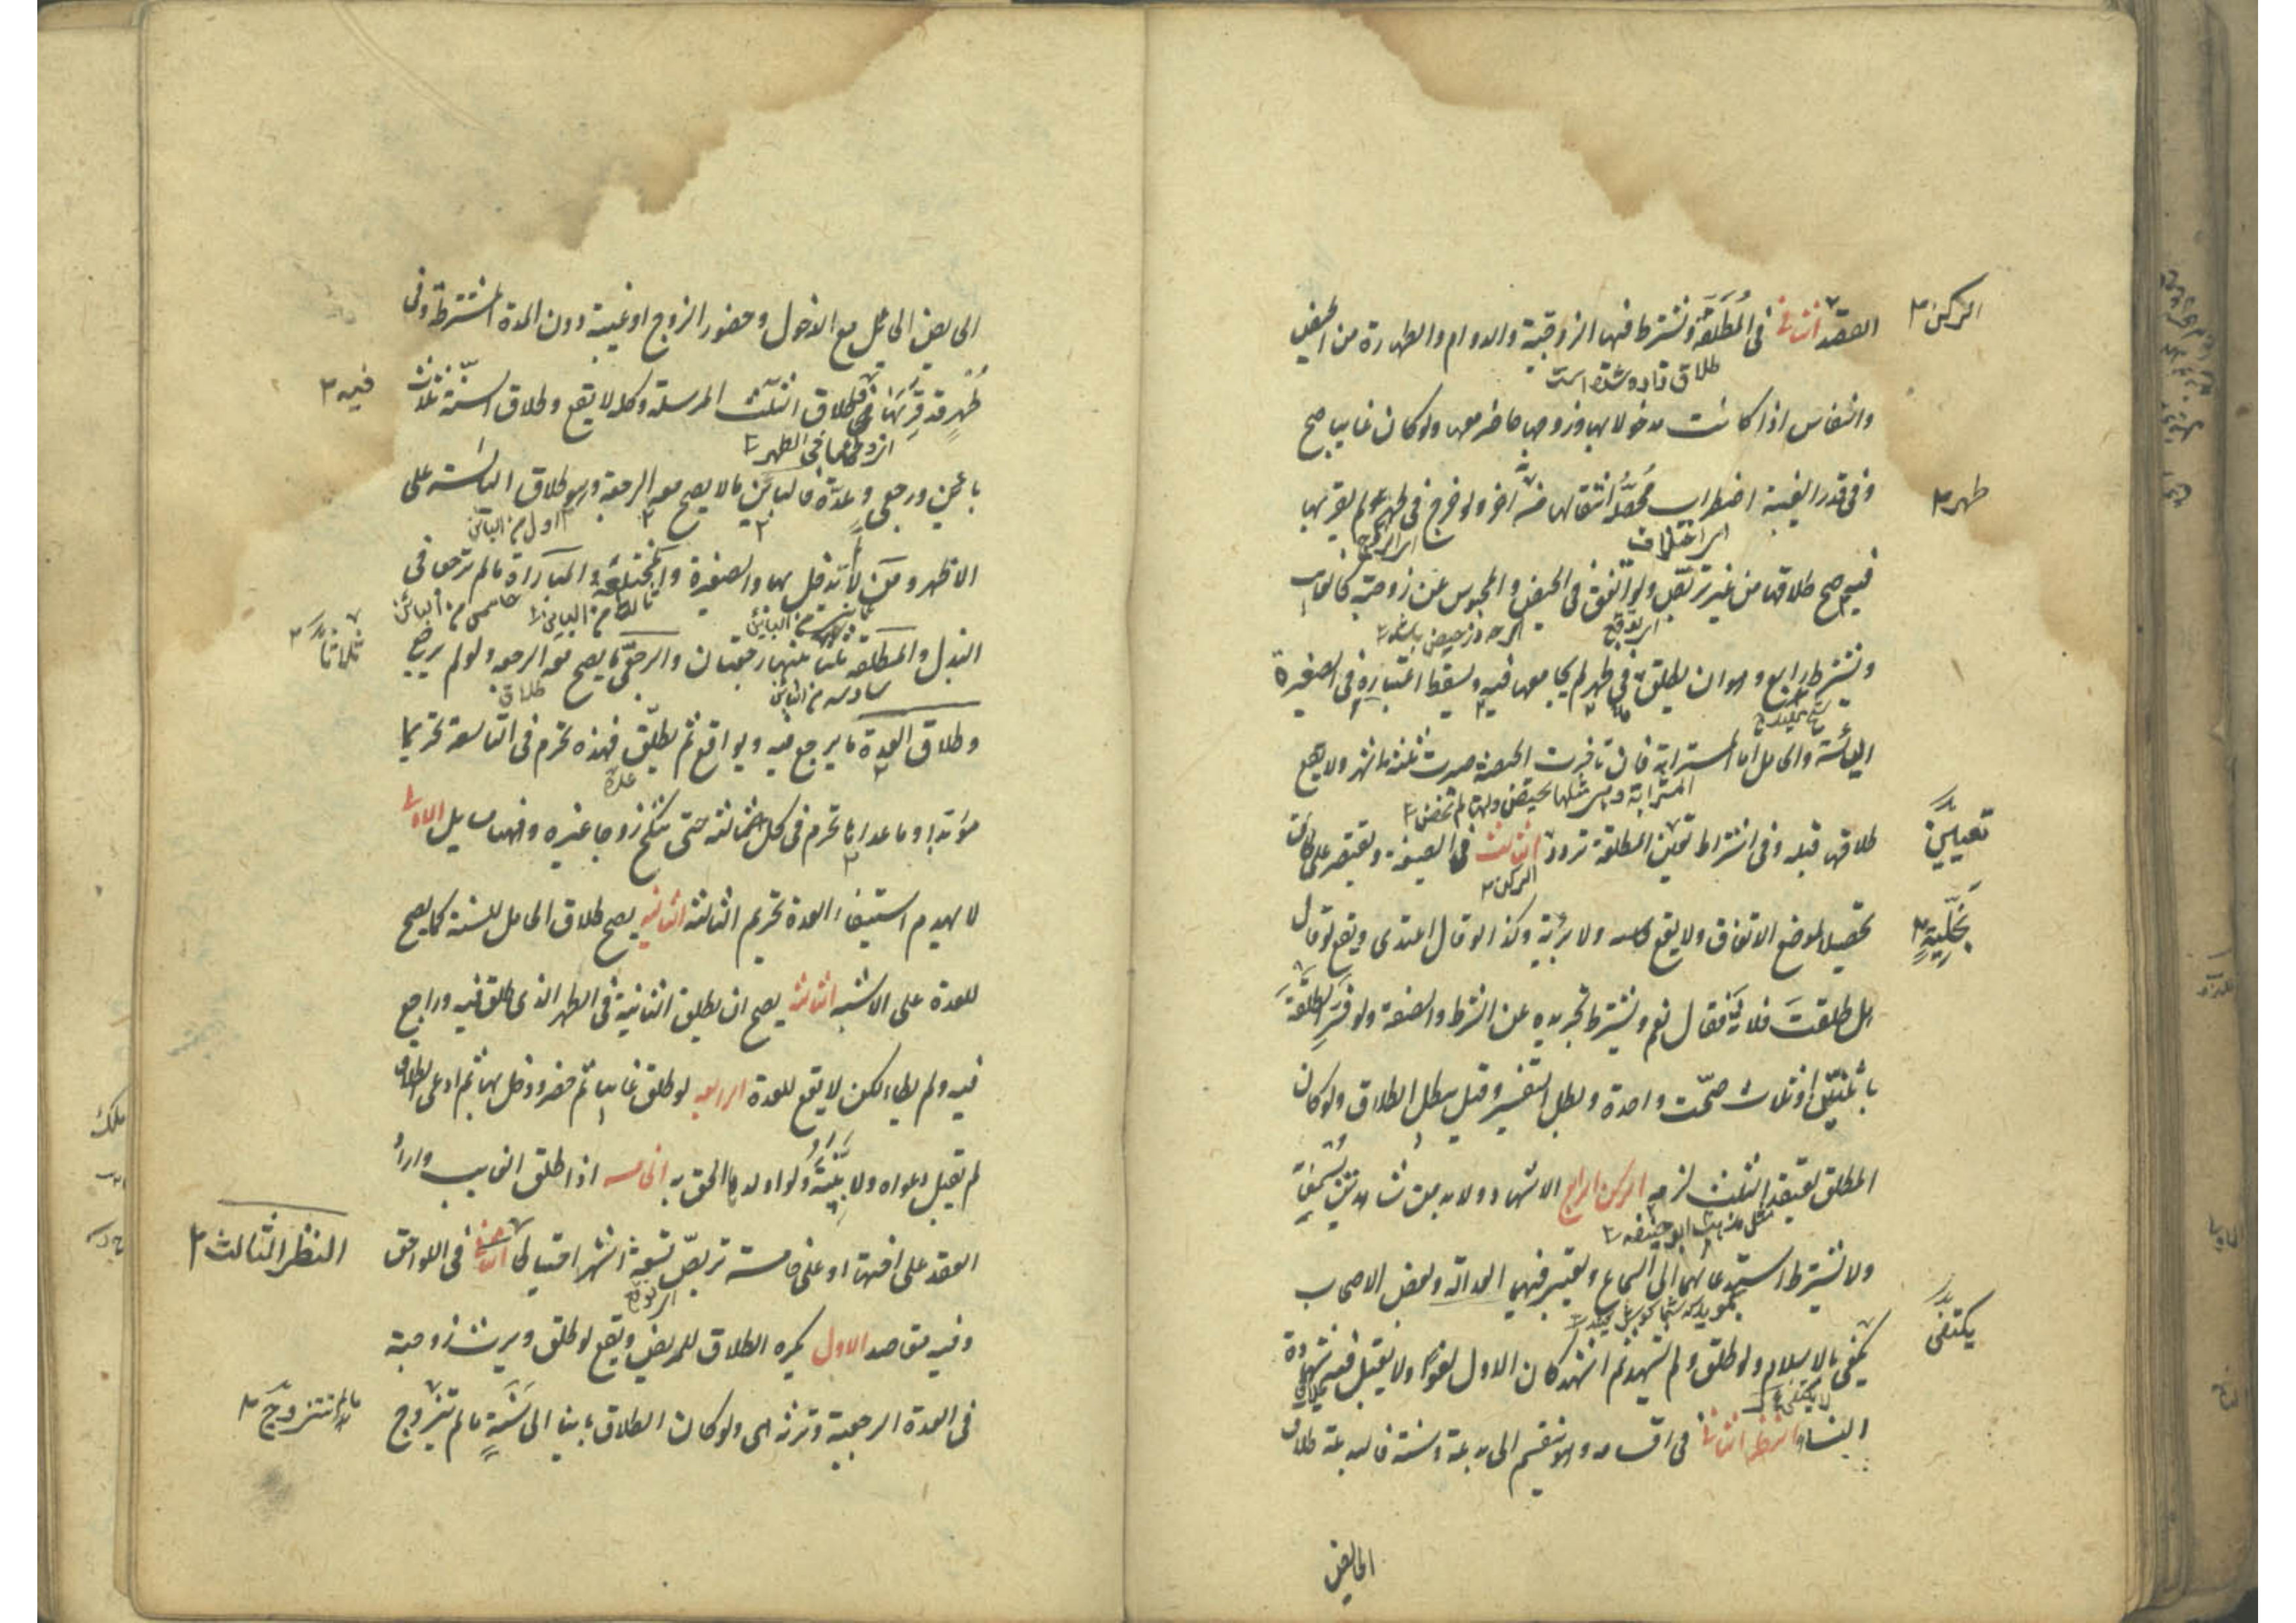 العقد الثانى فى المطلقة ويشترط فيها الزوجية والدوام والطهارة من الحيض
الركن
طلاق داده شده است
والنفاس اذا كانت مدخولا بها وزوجها حاضر معها ولو كان غايبا صح
وفى قدر الغيبة اضطراب محصله انتقالها من طهر الى آخر ولو خرج فى طهر لم يقربها
طهر
اى اختلاف
فيه صح طلاقها من غير تربص ولو اتفق فى الحيض والمحبوس عن زوجته كالغايب
ويشترط رابع وهو ان يطلق فى طهر لم يجامعها فيه ويسقط اعتباره فى الصغيرة
اليائسة والحامل اما المسترابة فان تاخرت الحيضة صبرت ثلثة اشهر ولا يقع
طلاقها قبله وفى اشتراط تعيين المطلقة تردد الثالث فى الصيغة ويقتصر على طالق
تعيين
الركن
تحصيلا لموضع الاتفاق ولا يقع بخلية ولا برية وكذا لو قال اعتدى ويقع لو قال
بخلية
هل طلقت فلانة فقال نعم ويشترط تجريده عن الشرط والصفة ولو فسر الطلقة
باثنتين او ثلاث صحت واحدة وبطل التفسير وقيل يبطل الطلاق ولو كان
المطلق يعتقد الثلث لزمه الركن الرابع الاشهاد ولا بد من شاهدين يسمعانه
مثل مذهب ابو حنيفه
ولا يشترط استدعائهما الى السماع ويعتبر فيهما العدالة وبعض الاصحاب
يكتفى بالاسلام ولو طلق ولم يشهد ثم اشهد كان الاول لغوا ولا يقبل فيه شهادة
يكتفى
النساء النظر الثانى فى اقسامه وهو ينقسم الى بدعة وسنة فالبدعة طلاق
الحايض
الحايض الحائل مع الدخول وحضور الزوج او غيبته دون المدة المشترطة وفى
طهر قد قربها فيه وطلاق الثلث المرسلة وكله لا يقع وطلاق السنة ثلاث
فيه
باين ورجعى وعدة فالباين مالا يصح معه الرجعة وهو طلاق اليائسة على
اول من البائن
الاظهر ومن لم يدخل بها والصغيرة والمختلعة والمباراة ما لم ترجع فى
البذل والمطلقة ثلثا بينها رجعتان والرجعى ما يصح معه الرجعة ولو لم يرجع
ثلاثا
سادس من البائن
طلاق
وطلاق العدة ما يرجع فيه ويواقع ثم يطلق فهذه تحرم فى التاسعة تحريما
عدة
مؤبدا وما عداها تحرم فى كل ثالثة حتى تنكح زوجا غيره وفيها مسايل الاولى
لا يهدم استيفاء العدة تحريم الثالثة الثانية يصح طلاق الحامل للسنة كما يصح
للعدة على الاشبه الثالثة يصح ان يطلق الثانية فى الطهر الذى طلق فيه وراجع
فيه ولم يطاء لكن لا يقع للعدة الرابعة لو طلق غايبا ثم حضر ودخل بها ثم ادعى الطلاق
لم تقبل دعواه ولا بينته ولو اولدها الحق به الخامسة اذا طلق الغايب واراد
العقد على اختها او على خامسة تربص تسعة اشهر احتياطا الثالث فى اللواحق
النظر الثالث
وفيه مقاصد الاول يكره الطلاق للمريض ويقع لو طلق ويرث زوجته
فى العدة الرجعية وترثه هى ولو كان الطلاق باينا الى سنة ما لم تتزوج
تتزوج